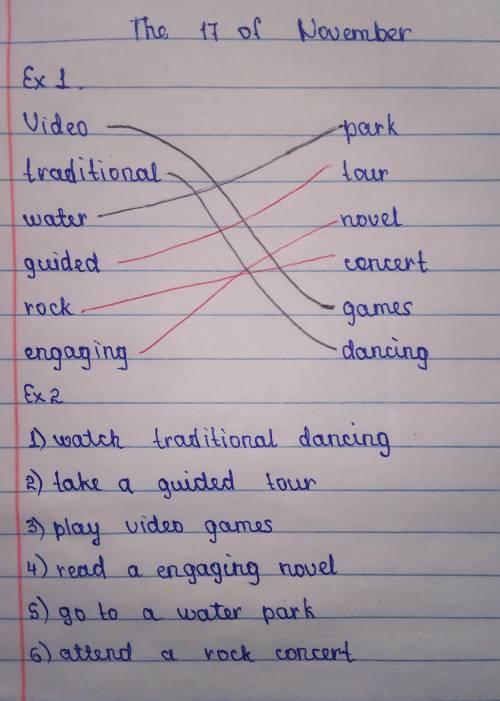 The 17 of November
Ex 1.
Video park
traditional tour
water novel
guided concert
rock games
engaging dancing
Ex 2
1) watch traditional dancing
2) take a guided tour
3) play video games
4) read a engaging novel
5) go to a water park
6) attend a rock concert